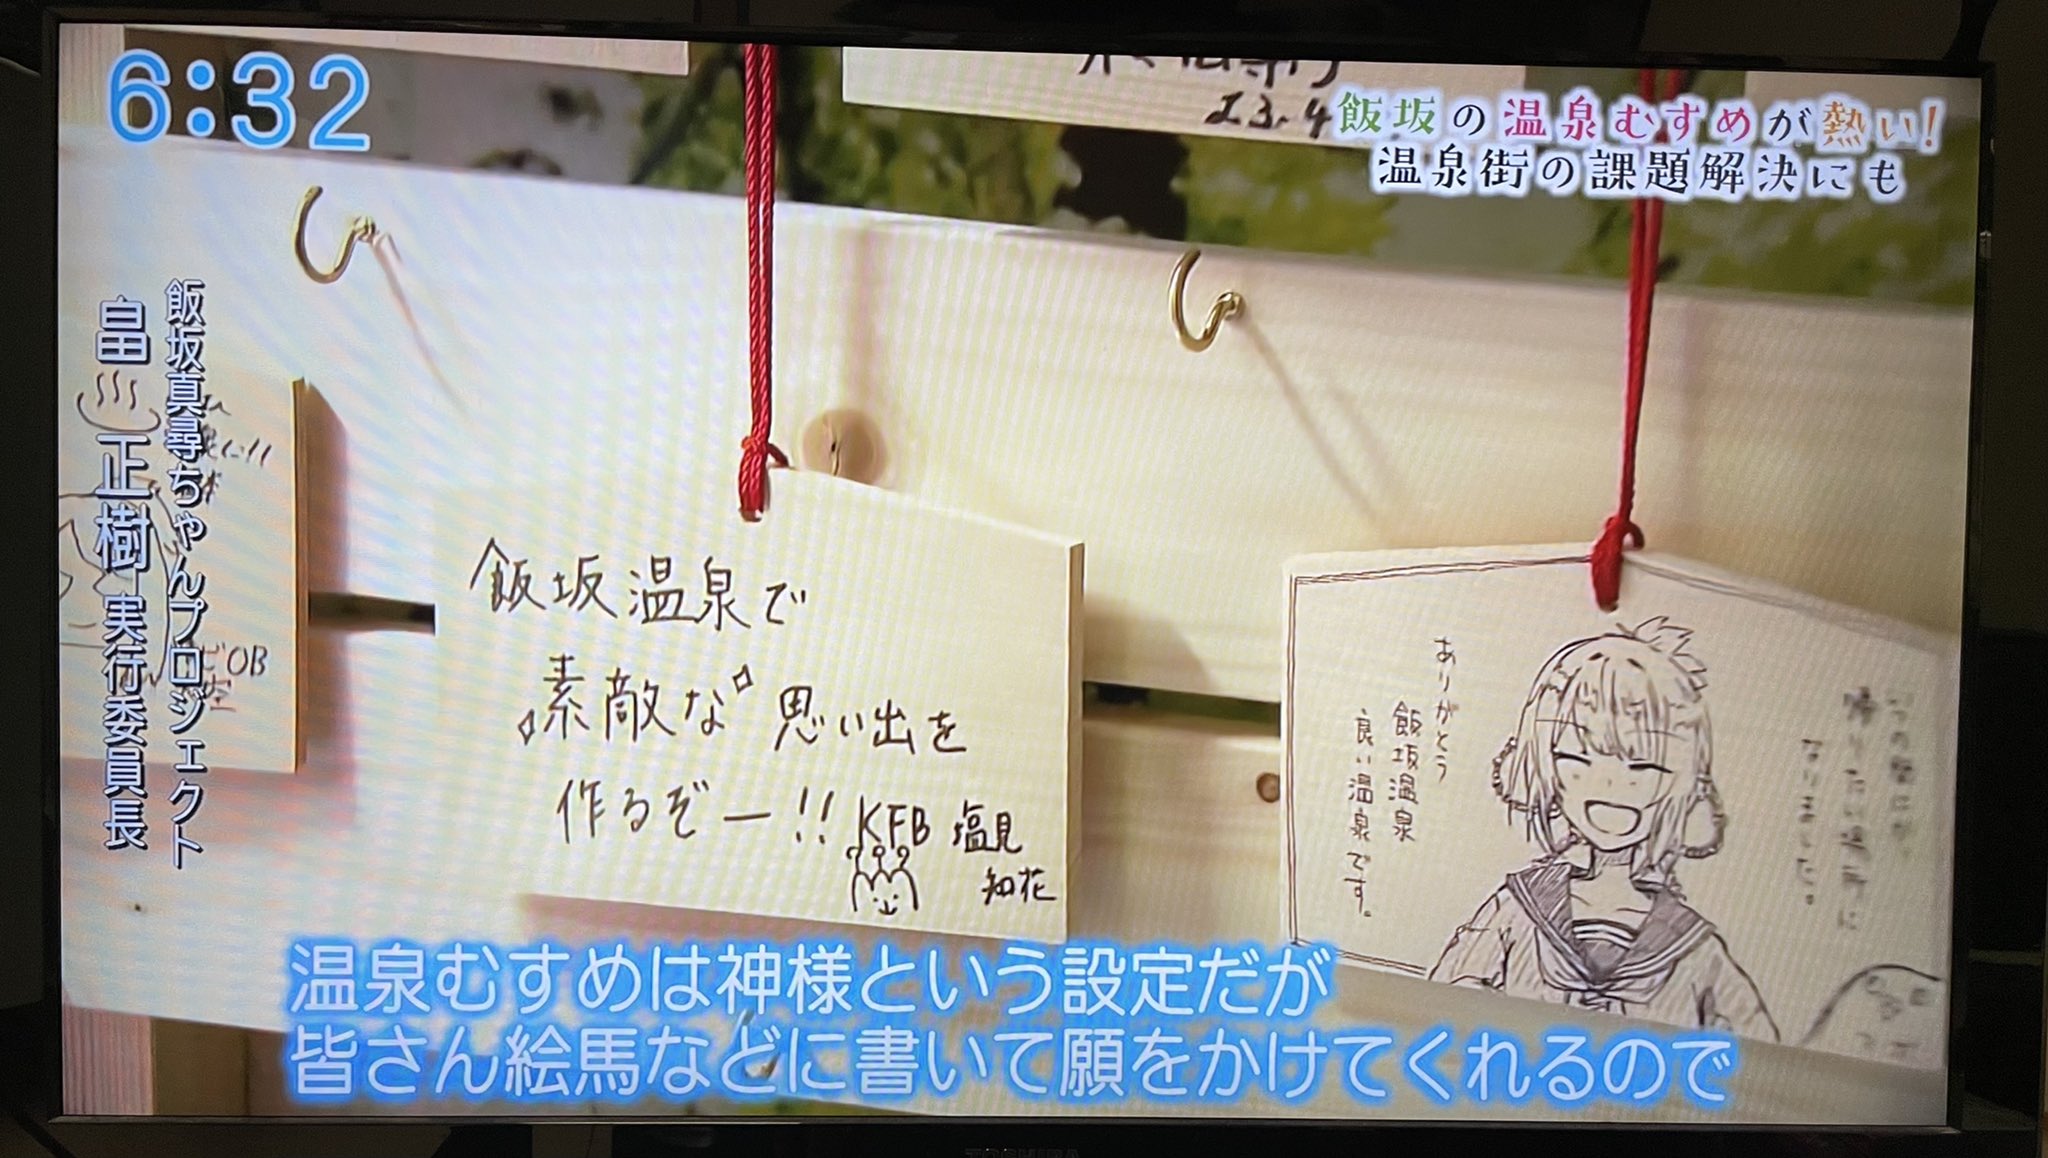 6:32
飯坂の温泉むすめが熱い!
温泉街の課題解決にも
飯坂真尋ちゃんプロジェクト
畠 正樹 実行委員長
23.4
OB
飯坂温泉で
素敵な 思い出を
作るぞー!!
KFB 塩見
知花
ありがとう
飯坂温泉
良い温泉です。
帰りたい場所に
なりました。
温泉むすめは神様という設定だが
皆さん絵馬などに書いて願をかけてくれるので